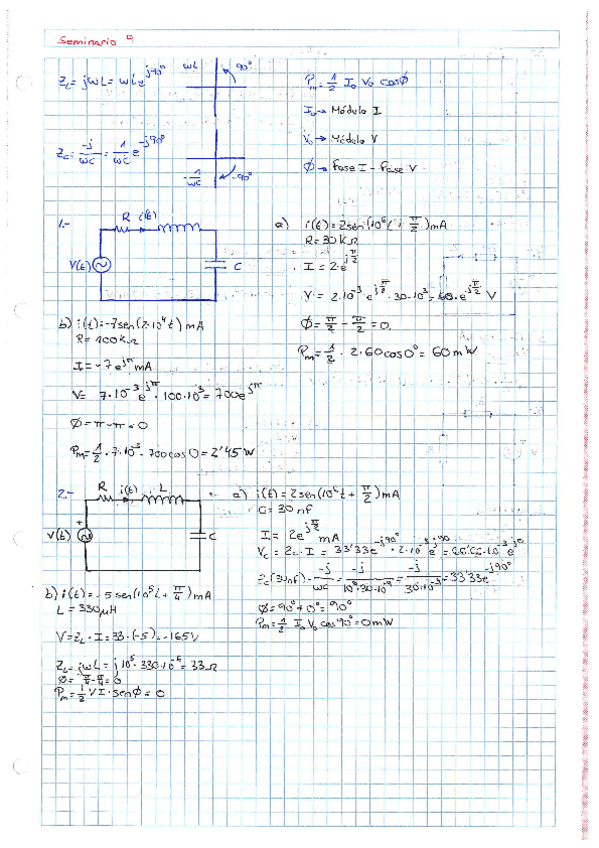 Seminario 4
Z_L = jωL = ωL e^{j90°}
ωL
90°
Z_C = -j/ωC = 1/ωC e^{-j90°}
-1/ωC
-90°
P_m = 1/2 I_o V_o cosϕ
I_o → Módulo I
V_o → Módulo V
ϕ → Fase I - Fase V
1.-
R i(t)
V(t)
C
a) i(t) = 2sen(10^6 t + π/2) mA
R = 30 kΩ
I = 2·e^{jπ/2}
V = 2·10^{-3} e^{jπ/2} · 30·10^3 = 60·e^{jπ/2} V
ϕ = π/2 - π/2 = 0.
P_m = 1/2 · 2·60cos0° = 60 mW
b) i(t) = -7sen(2·10^4 t) mA
R = 100 kΩ
I = -7 e^{jπ} mA
V = 7·10^{-3} e^{jπ} · 100·10^3 = 700e^{jπ}
ϕ = π - π = 0
P_m = 1/2 · 7·10^{-3} · 700cos0 = 2'45 W
2.-
R i(t) L
V(t)
+
C
a) i(t) = 2sen(10^6 t + π/2) mA
C = 30 nF
I = 2e^{jπ/2} mA
V_C = Z_C · I = 33'33e^{-j90°} · 2·10^{-3} e^{j90} = 66'66·10^{-3} e^{j0}
Z_C(30nF) = -j/ωC = -j/10^6·30·10^{-9} = -j/30·10^{-3} = 33'33e^{-j90°}
ϕ = 90° + 0° = 90°
P_m = 1/2 I_o V_o cos90° = 0mW
b) i(t) = -5sen(10^5 t + π/4) mA
L = 330μH
V = Z_L · I = 33·(-5) = -165V
Z_L = jωL = j10^5 · 330·10^{-6} = 33Ω
ϕ = π/4 - π/4 = 0
P_m = 1/2 V I · senϕ = 0